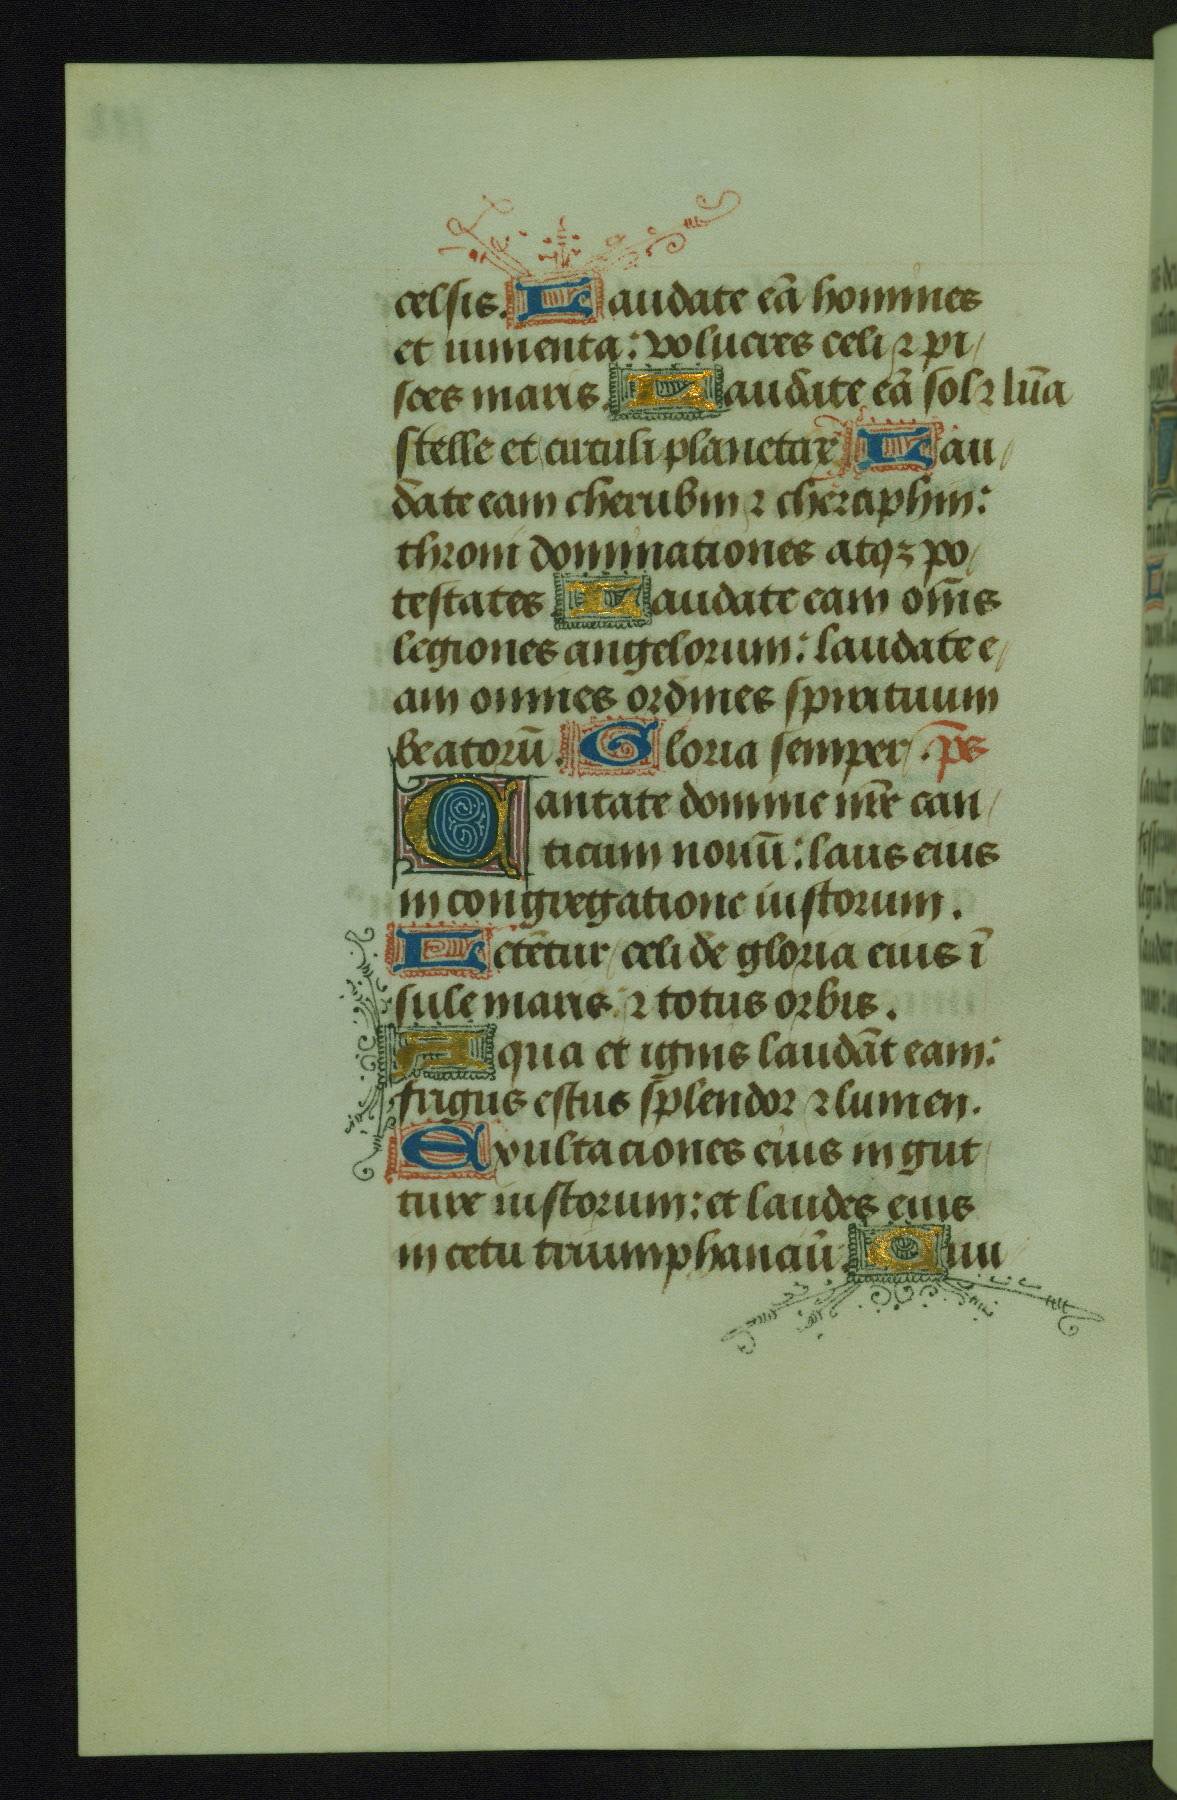 celsis. Laudate eā homines
et iumenta: volucres celi ⁊ pi/
sces maris. Laudate eā sol ⁊ lūa
stelle et circuli planetar̄ Lau/
date eam cherubin ⁊ cheraphin:
throni dominationes atqꝫ po/
testates Laudate eam om̄s
legiones angelorum: laudate e/
am omnes ordines spirituum
beatorū. Gloria semper. p̄s
Cantate domine nr̄e can/
ticum nouū: laus eius
in congregatione iustorum.
Letētur celi de gloria eius ī
sule maris ⁊ totus orbis.
Aqua et ignis laudāt eam:
frigus estus splendor ⁊ lumen.
Exultaciones eius in gut/
ture iustorum: et laudes eius
in cetu triumphanciū. Ciui/